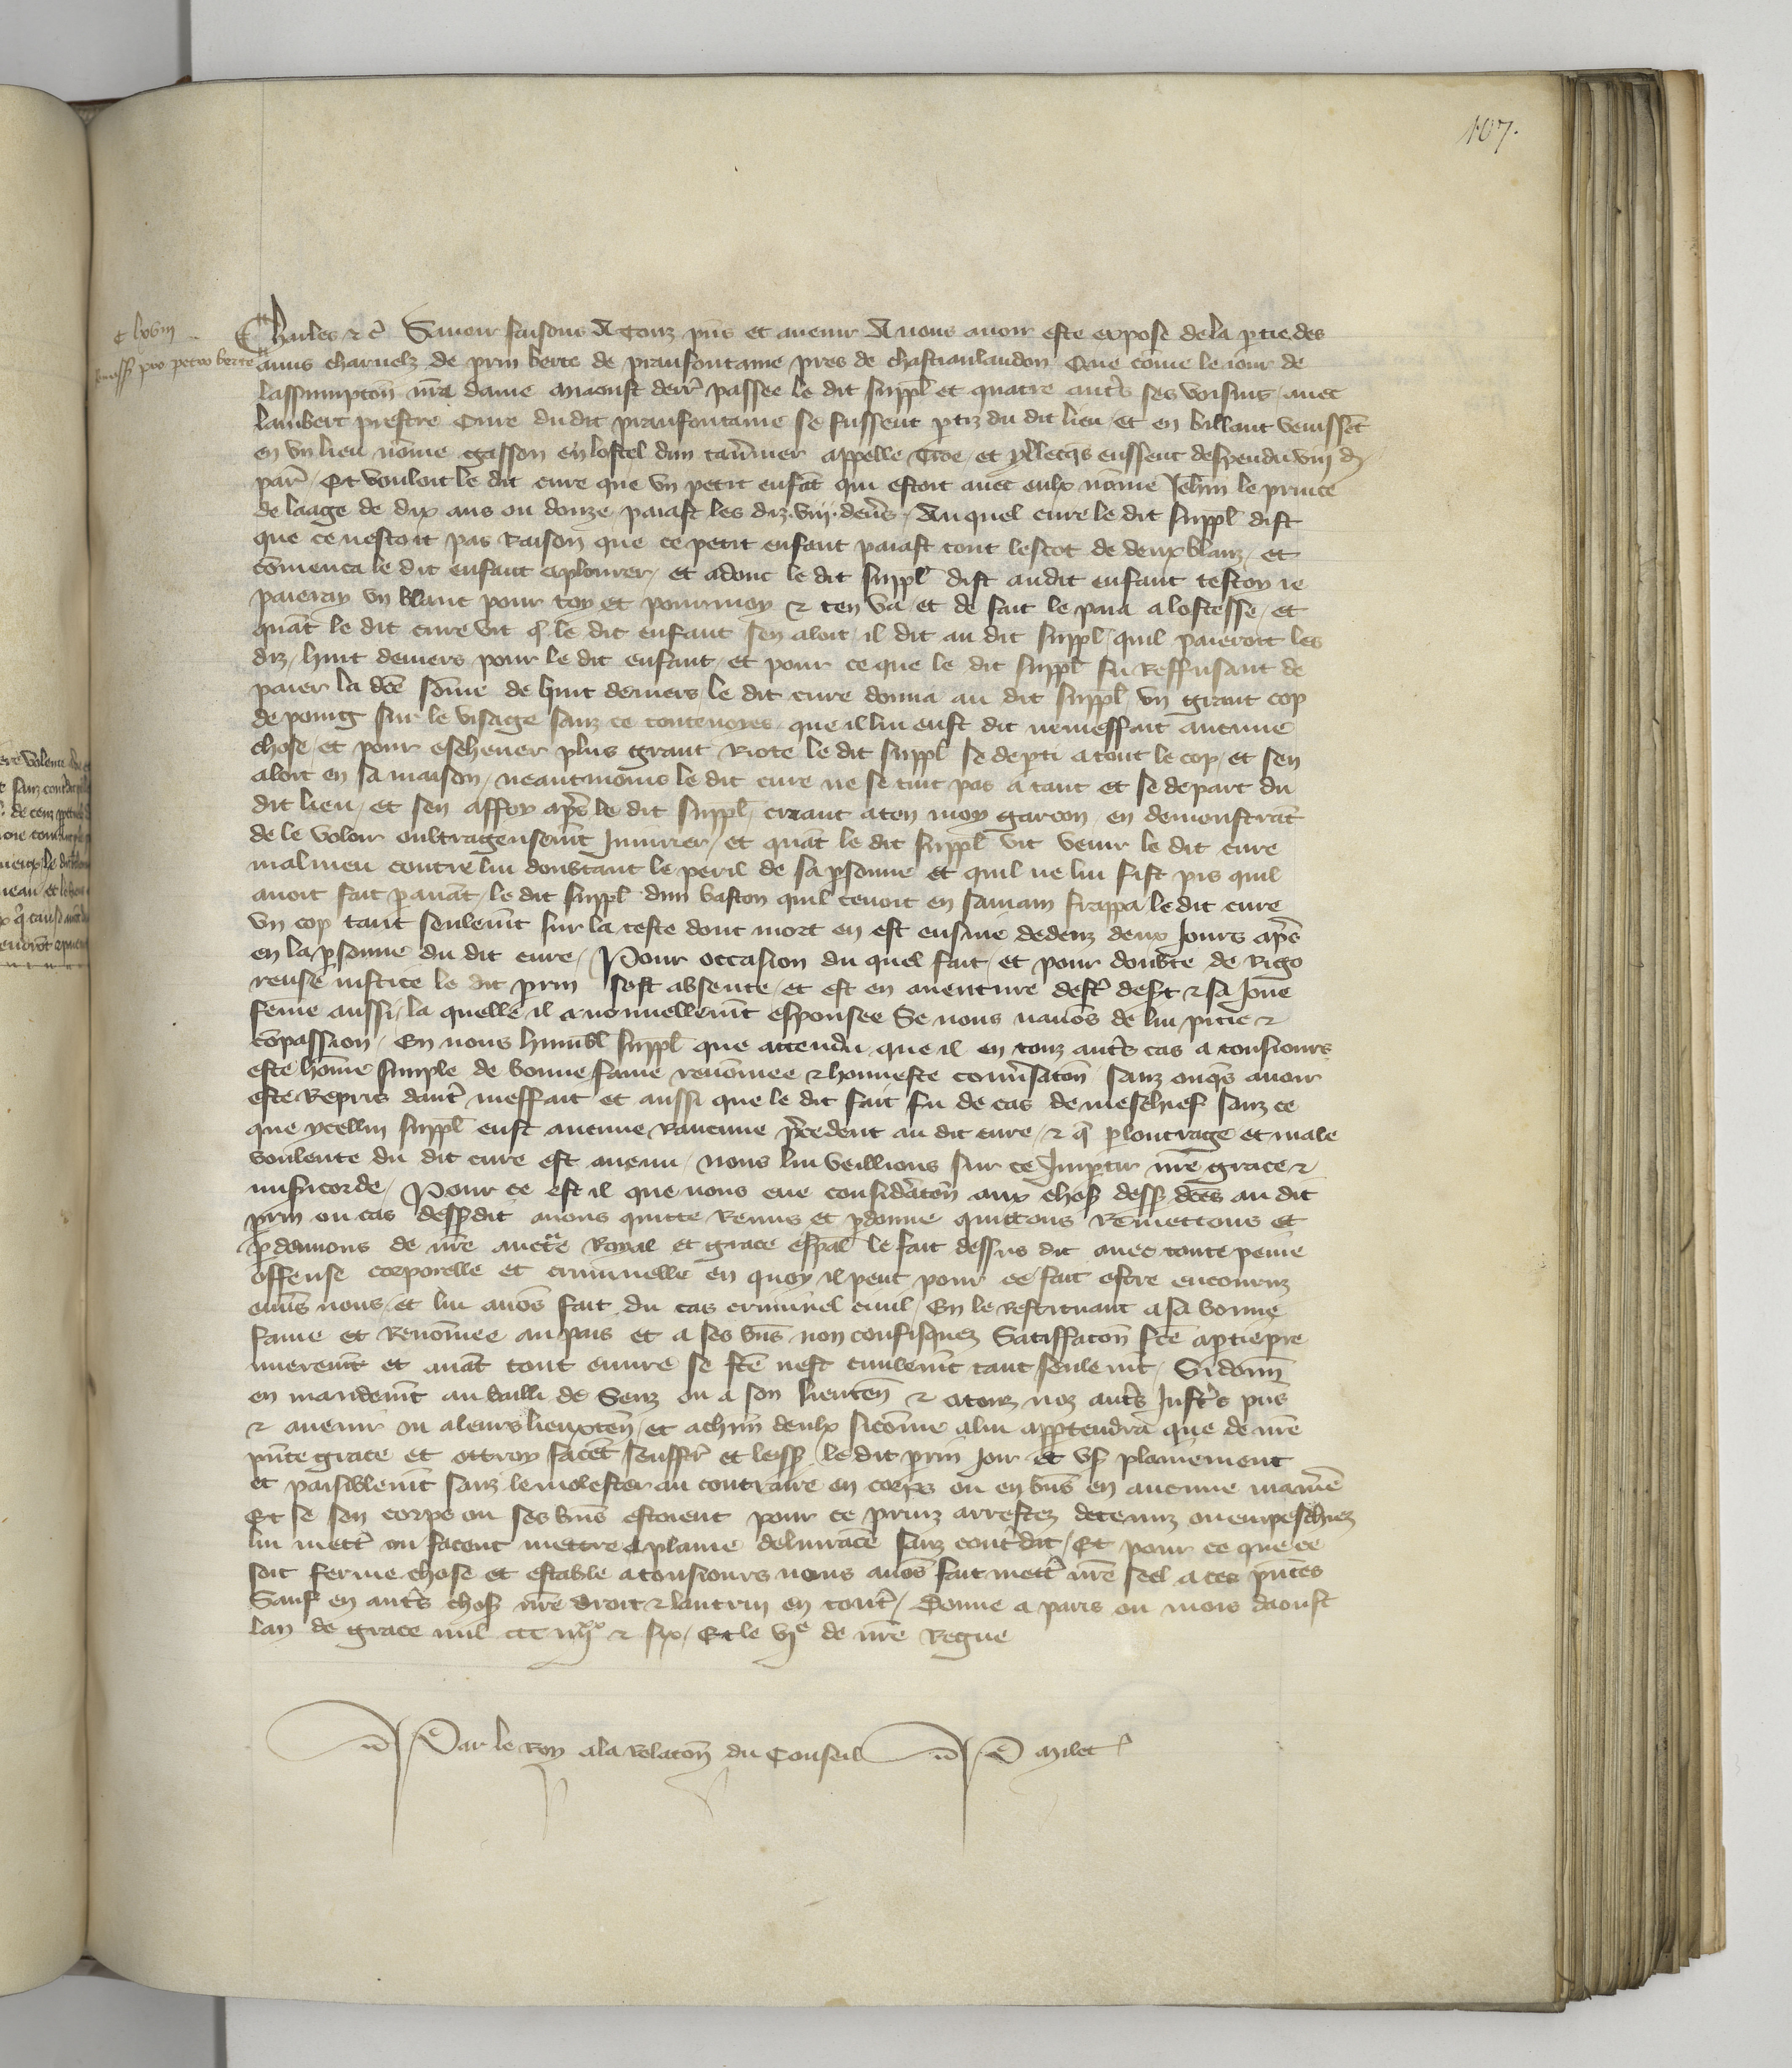 107.
Charles &c̃ Savoir faisons A touz p̃ns et avenir A nous avoir este expose de la p̱tie des
amis charnelz de p̱rin berte de pranfontaine pres de chastianlandon Que com̃e le iour de
lassumpcion n̄r̄e dame miaoust derr̃ passee le dit supp̱l et quatre autr̃s ses voisins / avec
lambert prestre Cure du dit pranfontaine se fussent p̱tiz du dit lieu / et en billant venissẽt
en vn lieu nõme gasson en lostel dun tav̄nier appelle / et yllecq̃s eussent despendu viij d̃
par̃ / Et vouloit le dit cure que vn petit enfãt qui estoit avec eulx nõme Jeh̃in le prince
de laage de dix ans ou douze paiast les diz viij. den̄s / Auquel cure le dit supp̱l dist
que ce nestoit pas Raison que ce petit enfant paiast tout lescot de deux blanz / et
com̃enca le dit enfant a plourer / et adonc le dit supp̱l dist audit enfant testoy ie
paieray vn blanc pour toy et pour moy & ten va / et de fait le paia a lostesse / et
quãt le dit cure vit q̃ le dit enfant sen aloit / il dit au dit supp̱l quil paieroit les
diz / huit deniers pour le dit enfant / et pour ce que le dit supp̱l fu Reffusant de
paier la dc̃e som̃e de huit deniers / le dit cure donna au dit supp̱l vn grant cop
de poing sur le visage sanz ce toutevoies que il lui eust dit ne meffait aucune
chose / et pour eschever plus grant Riote le dit supp̱l se dep̱ti a tout le cop / et sen
aloit en sa maison / neantmoins le dit cure ne se tint pas a tant et se depart du
dit lieu / et sen affoy ap̃s le dit supp̱l / criant a ton moy garcon / en demonstrãt
de le voloir oultrageusem̃t Iniurier / et quãt le dit supp̱l vit venir le dit cure
malmeu contre lui doubtant le peril de sa p̱sonne et quil ne lui fist pis quil
avoit fait p̱avãt / le dit supp̱l dun baston quil tenoit en sa main frappa le dit cure
vn cop tant seulem̃t sur la teste dont mort en est ensuie dedenz deux Jours ap̃s
en la p̱sonne du dit cure / Pour occasion du quel fait / et pour doubte de Rigo
reuse iustice le dit p̱rin sest absente / et est en aventure desr̃ desp̱t & sa Jone
fem̃e aussi / la quelle il a nouvellem̃t espousee Se nous navõs de lui pitie &
cõpassion / En nous humbl̃ suppl̃ que attendu que il en touz autr̃s cas a tousiours
este hom̃e simple de bonne fame renõmee & honneste conv̄sacõn sanz onq̃s avoir
este Repris dautr̃ meffait et aussi que le dit fait fu de cas de meschief sanz ce
que ycellui supp̱l eust aucune Rancune p̃cedent au dit cure / & q̃ p̱ loutrage et male
voulente du dit cure est avenu / nous lui veillions sur ce Imp̱tir n̄r̄e grace &
misɩ̃corde / Pour ce est il que nous eue considẽacõn aux chos̃ dess̃ dc̃es au dit
p̱rin ou cas dess̃dit avons quitte Remis et p̱donne quittons Remettons et
p̱donnons de n̄r̄e auctẽ Royal et grace esp̃al le fait dessus dit avec toute peine
offense corporelle et criminelle en quoy il peut pour ce fait estre encouruz
env̄s nous / et lui avõs fait du cas criminel civil / En le restituant a sa bonne
fame et Renõmee au pais et a ses bñs non confisquez Satiffacõn fc̃e a p̱tie p̱re
mierem̃t et avãt tout euvre se fc̃e nest civilem̃t tant seulem̃t / Si donñ
en mandem̃t au bailli de Senz ou a son lieuteñ & a touz noz autr̃s Just̃rs p̃ns
& avenir ou a leurs lieuxteñ / et a ch̃un deulx sicom̃e a lui app̱tendra que de n̄r̄e
p̃nte grace et ottroy facẽt seuffr̃ et leiss̃ le dit p̱rin Joir et vs̃ plainement
et paisiblem̃t sanz le molester au contraire en corps ou en bñs en aucune manĩe
Et se son corps ou ses bñs estoient pour ce prinz arrestez detenuz ou empeschiez
lui mettr̃ ou facent mettre a plaine delivrãce sanz contr̃dit / Et pour ce que ce
soit ferme chose et estable a tousiours nous avõs fait mettr̃ n̄r̄e seel a ces p̃ntes
Sauf en autr̃s chos̃ n̄r̄e droit & lautrui en tout̃ / Donne a paris ou mois daoust
lan de grace mil ccc iiijxx & six / Et le vjᵉ de n̄r̄e Regne
Par le Roy a la Relacõn du Conseil P Milet